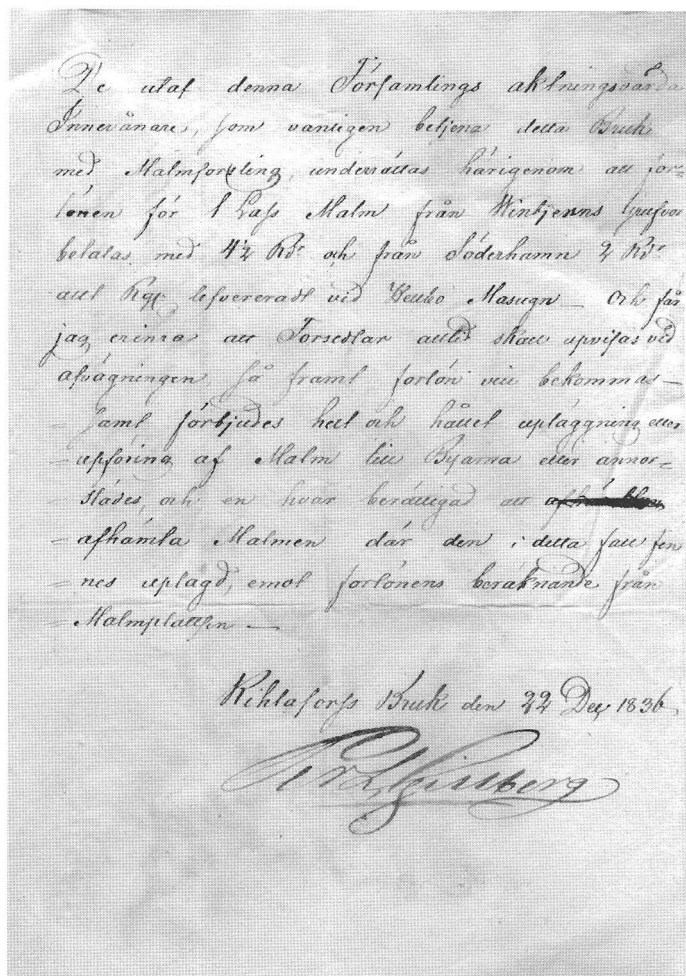 De utaf denna Församlings aktningsvärda
Innevånare, som vanligen betjena detta Bruk
med Malmforsling, underrättas härigenom att for-
lönen för 1 Lass Malm från Wintjerns Grufvor
betalas med 4½ Rdr och från Söderhamn 2 Rdr
allt Rgs lefvereradt vid Heubo Masugn — och får
jag erinra att Forsedlar alltid skall upvisas vid
afvägningen, så framt forlön vill bekommas —
— samt förbjudes helt och hållet upläggning eller
— upföring af Malm till Byarna eller annor-
— städes, och en hvar berättigad att
— afhämta Malmen där den i detta fall fin
— nes uplagd, emot forlönens beräknande från
— Malmplatsen —
Kihlaforss Bruk den 22 Dec 1836